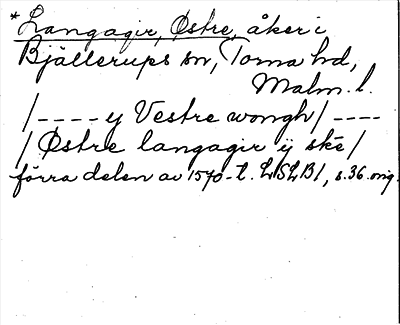 *Langagir, Østre, åker i
Bjällerups sn, Torna hd,
Malm. l.
/---- y Vestre wongh/ ----
/ Østre langagir ij ske/
förra delen av 1570-t. LSLB1, s. 36. orig.